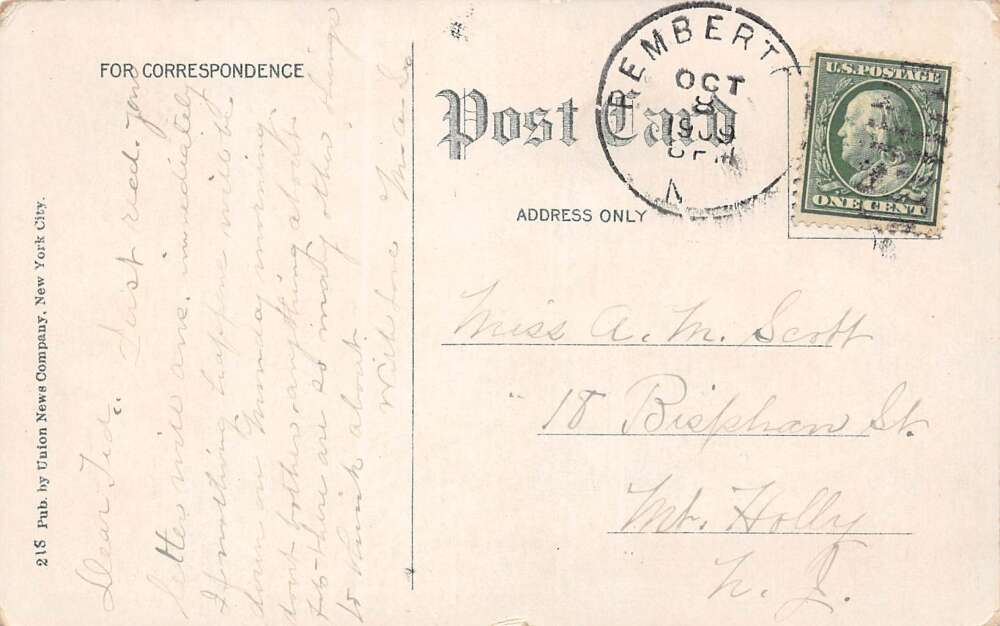 FOR CORRESPONDENCE
Dear Ted:. Just recd. your
letter will ans. immediately
If nothing happens will be
down on Thursday morning
dont bother anything about
as there are so many other things
to think about.
With love
Post Card
ADDRESS ONLY
PEMBERT
OCT
8
1909
N
U.S. POSTAGE
ONE CENT
Miss A. M. Scott
18 Bispham St.
Mt. Holly
N. J.
21S Pub. by Union News Company, New York City.